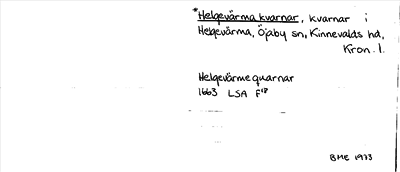 *Helgevärma kvarnar, kvarnar i
Helgevärma, Öjaby sn, Kinnevalds hd,
Kron. l.
Helgevärme quarnar
1663 LSA F18
BME 1973